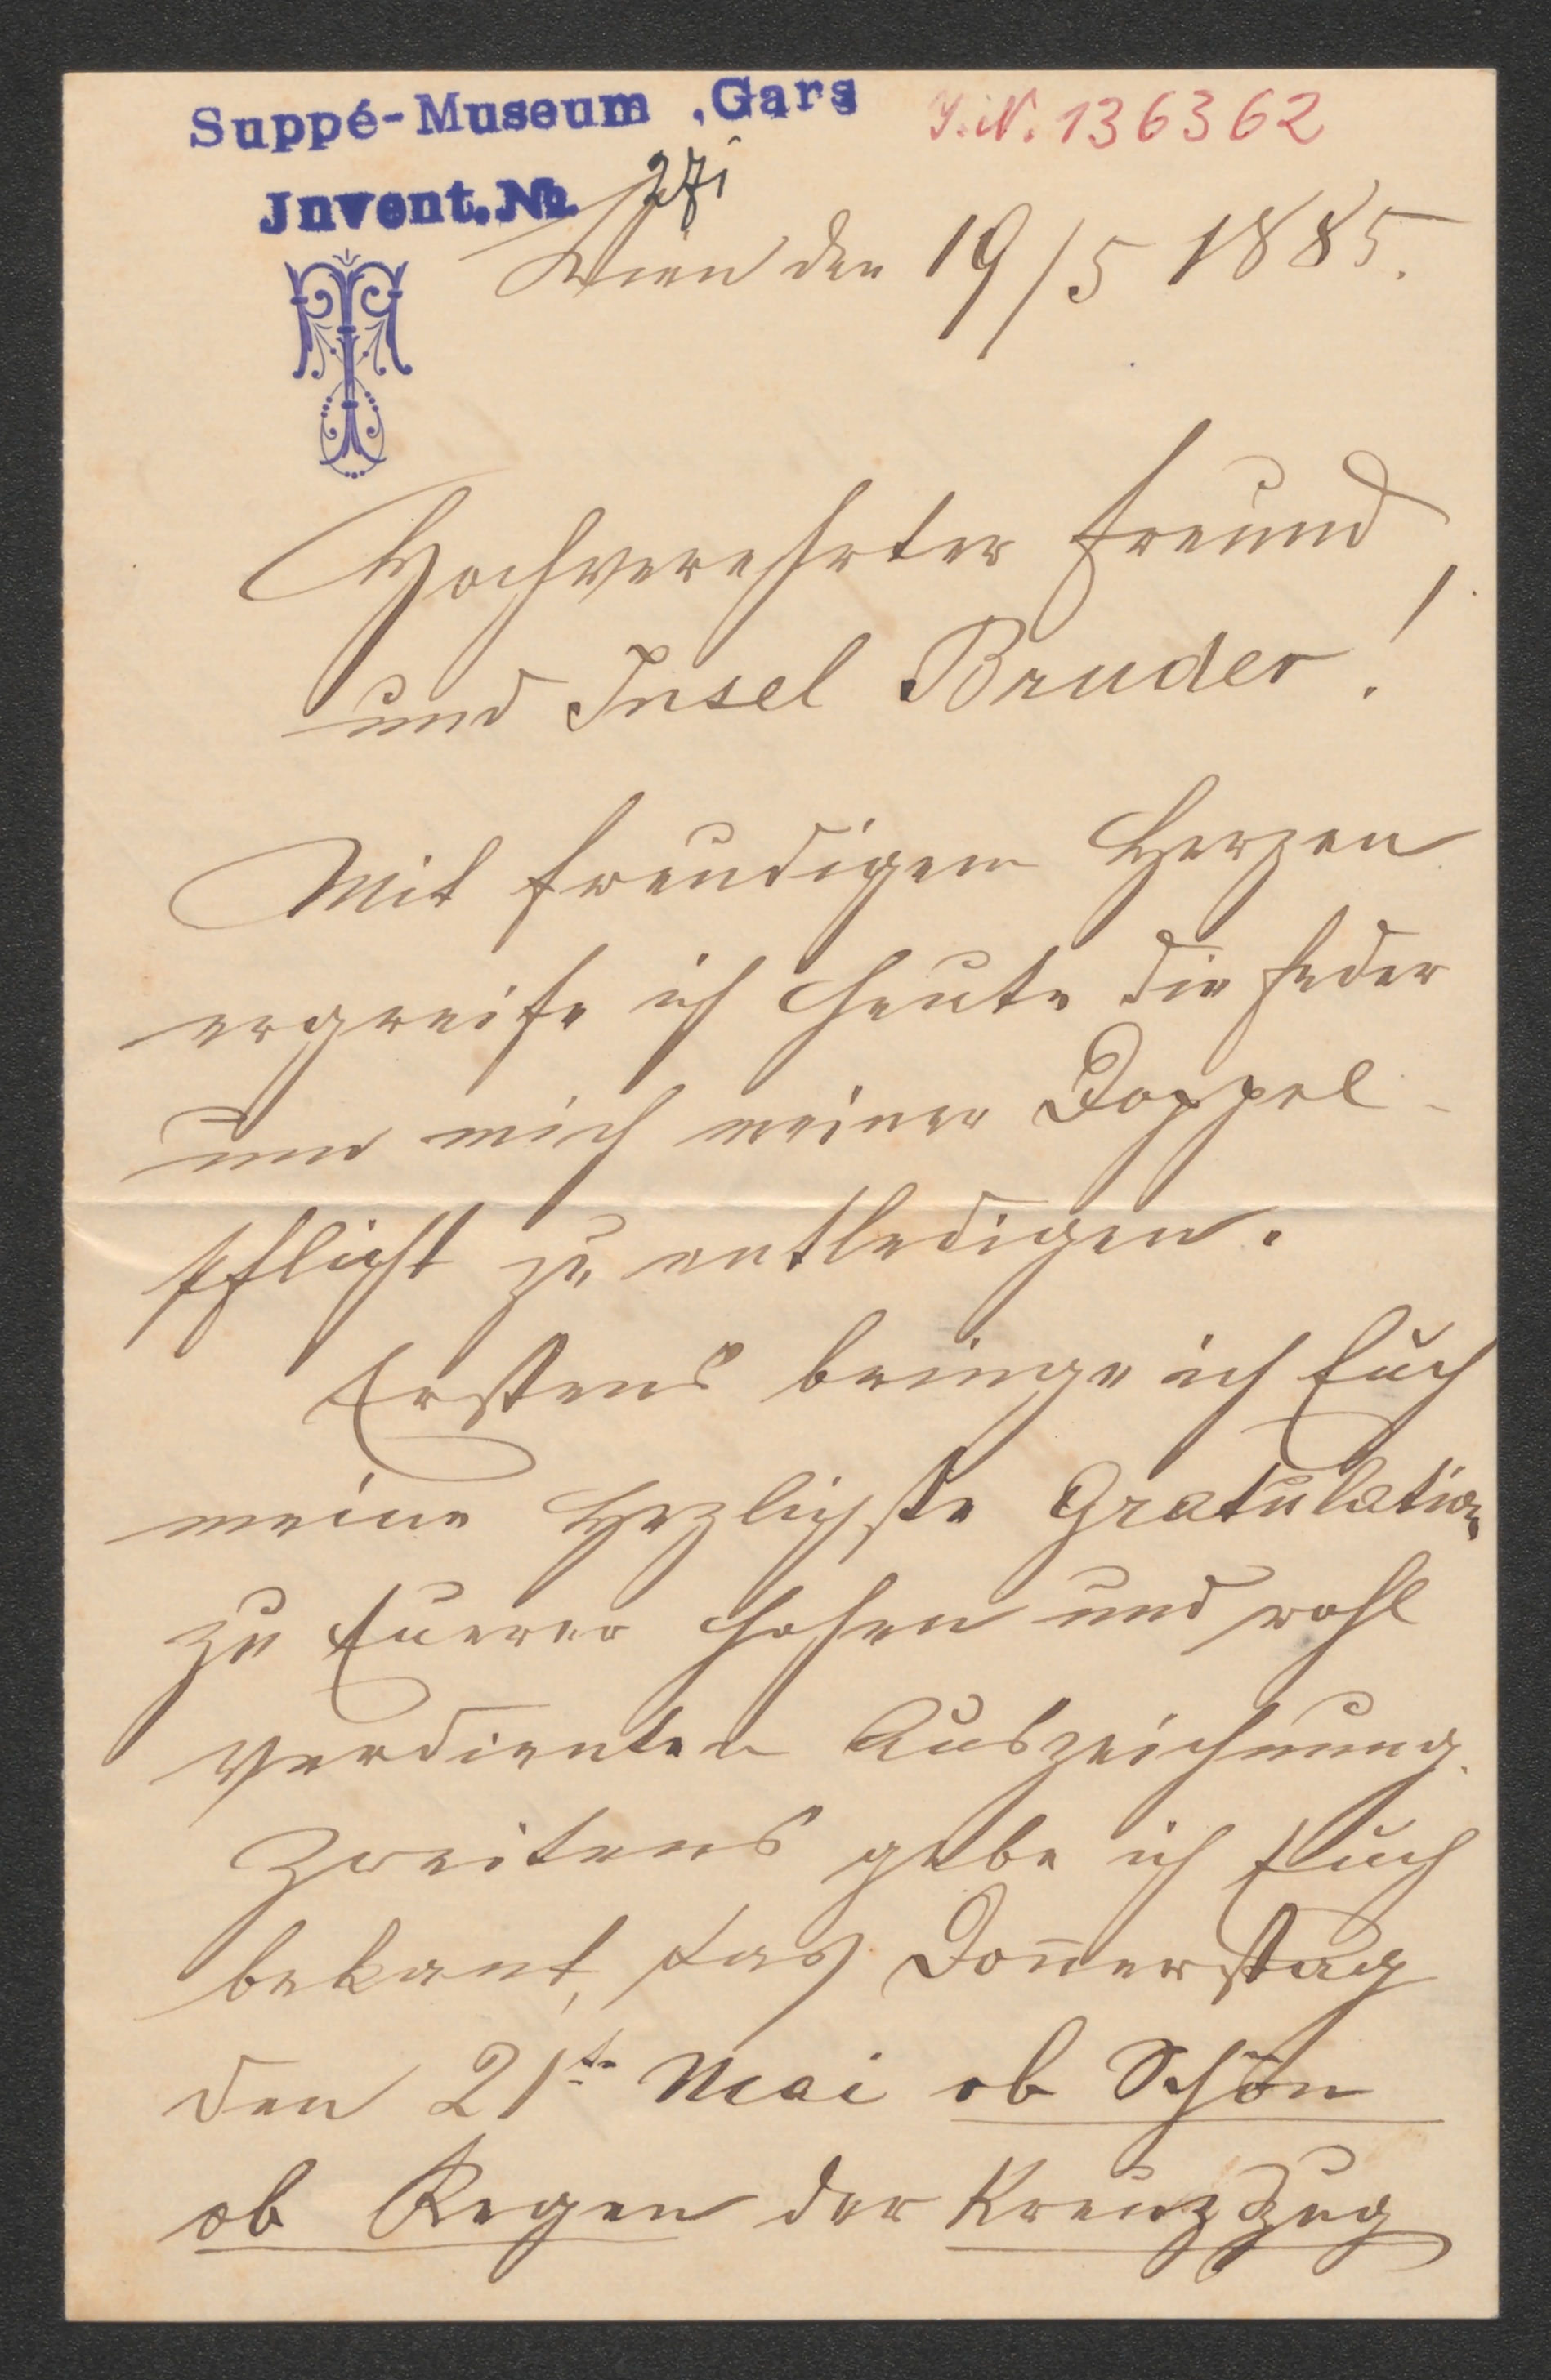 Suppé-Museum, Gars
I.N. 136362
Jnvent.No. 271
Wien den 19/5 1885.
Hochverehrter Freund
und Insel Bruder!
Mit freudigem Herzen
ergreife ich heute die Feder
um mich meiner Doppel-
pflicht zu entledigen.
Erstens bringe ich Euch
meine Herzlichste Gratulation
zu Euerer hohen und wohl
verdienten Auszeichnung.
Zweitens gebe ich Euch
bekant, das Doñerstag
den 21te Mai ob Schön
ob Regen der Kreuzzug